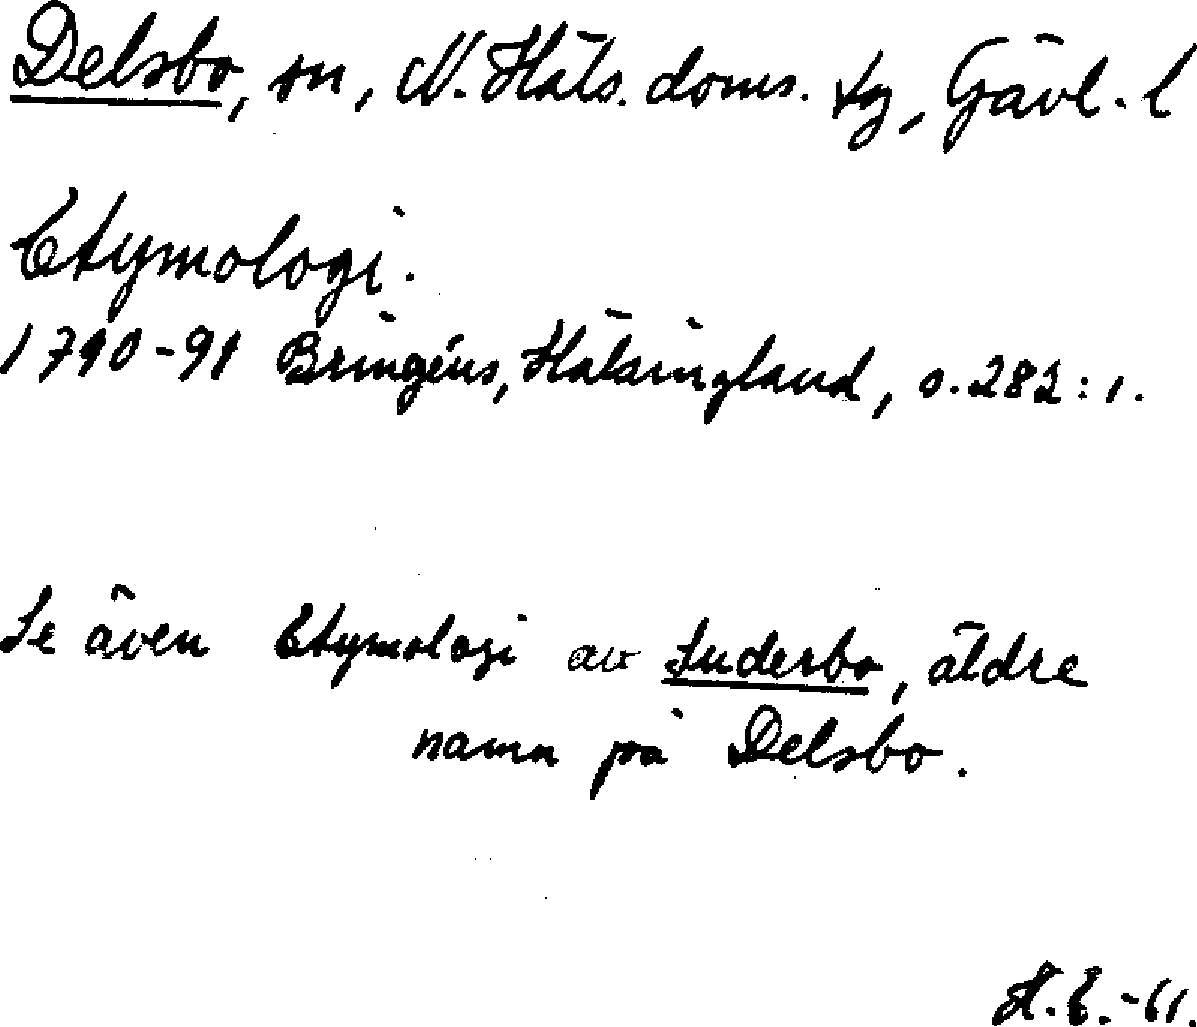 Delsbo, sn, N. Häls. doms. tg, Gävl. l
Etymologi.
1790-91 Bringéus, Hälsingland, s. 282:1.
Se även Etymologi av Suderbo, äldre
namn på Delsbo.
H.E.-61.